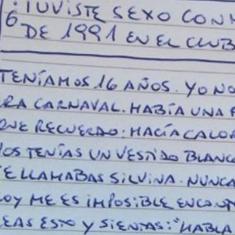 ¿TUVISTE SEXO CONM
6 DE 1991 EN EL CLUB
TENÍAMOS 16 AÑOS. YO NO
RA CARNAVAL. HABÍA UNA F
QUE RECUERDO: HACÍA CALOR
VOS TENÍAS UN VESTIDO BLANCO
TE LLAMABAS SILVINA. NUNCA
OY ME ES IMPOSIBLE ENCONT
EAS ESTO Y SIENTAS: "HABLA